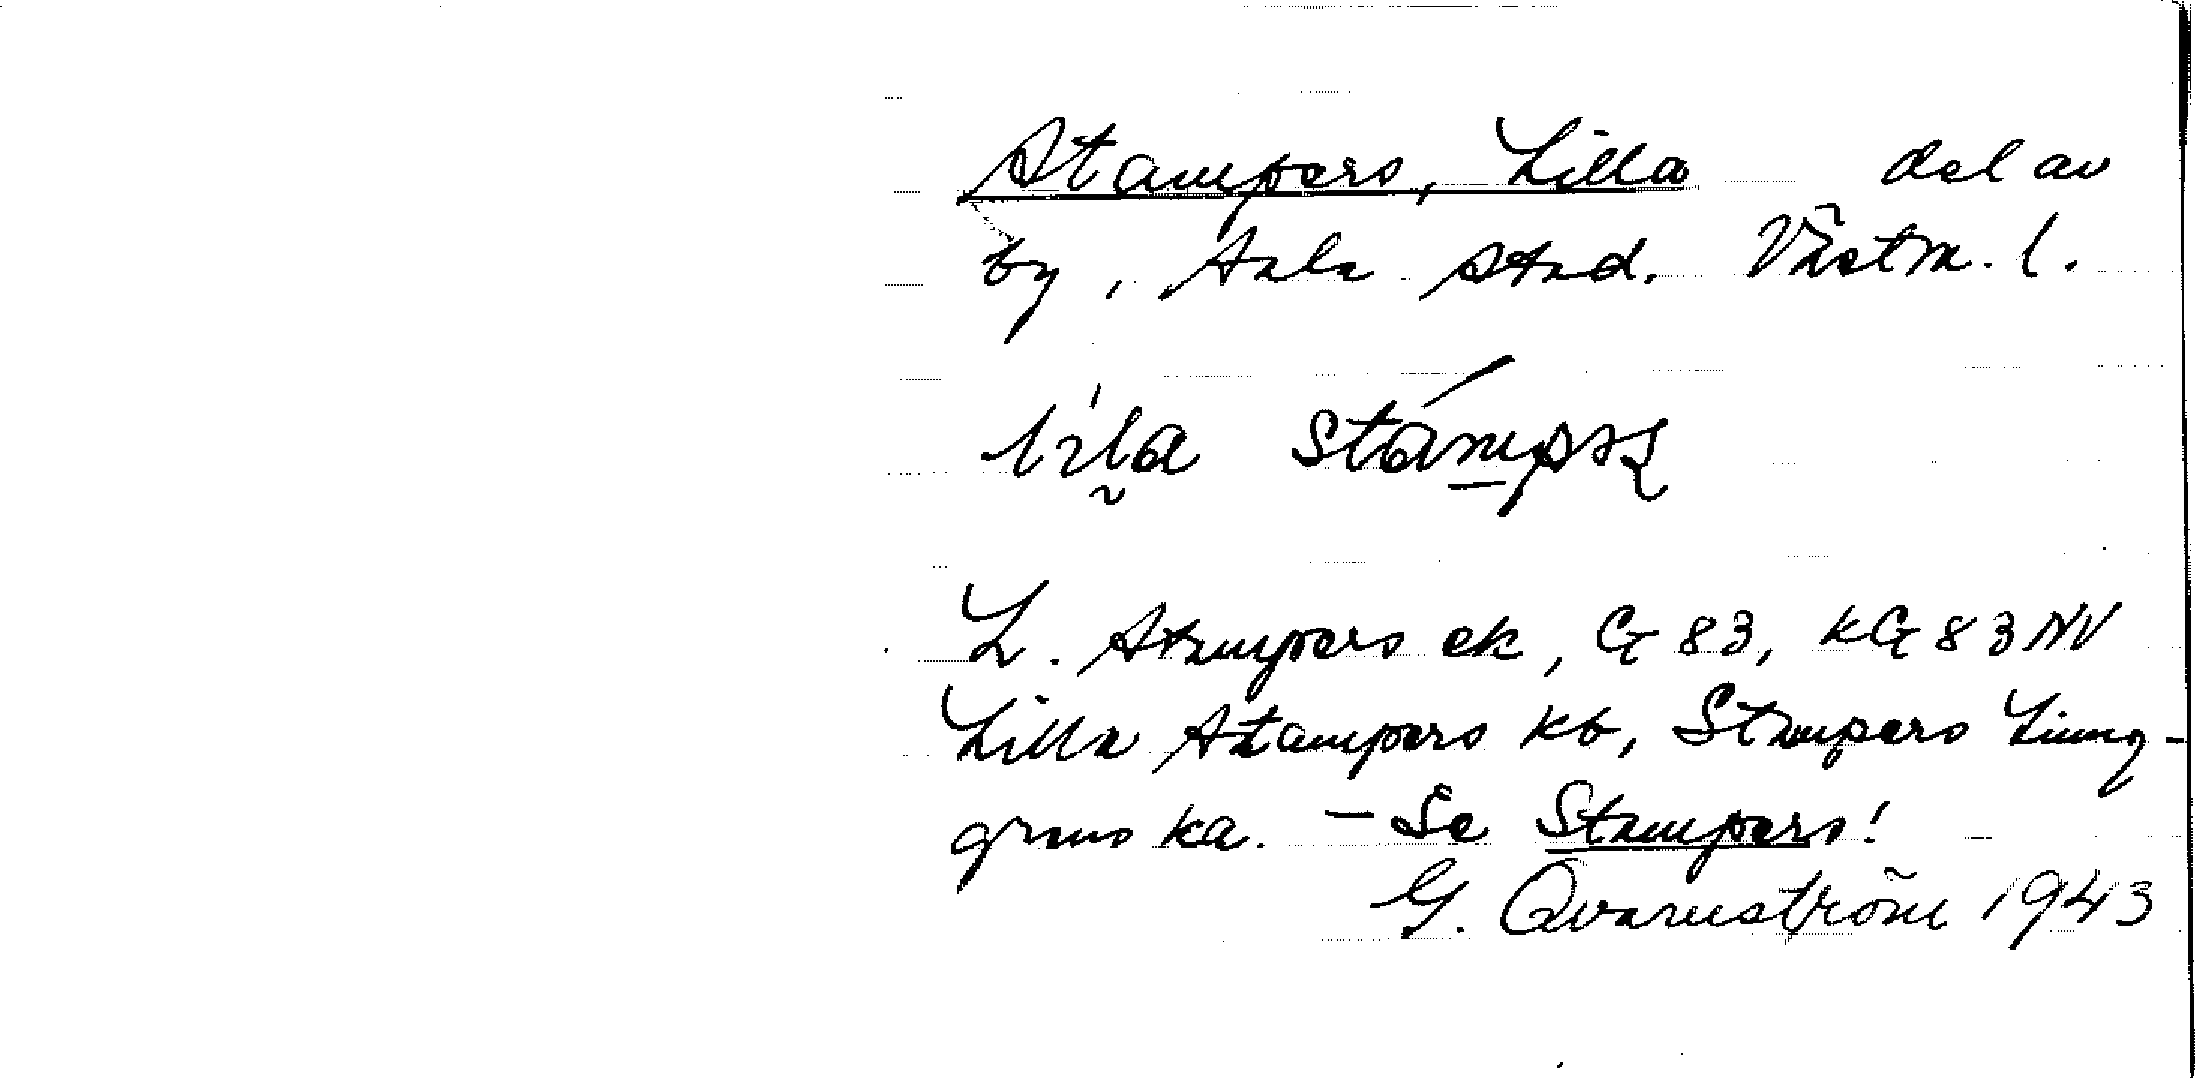 Stampers, Lilla del av
by, Sala stad. Västm. l.
lila stámpaʂ
L. Stampers ek, G 83, KG 83 NV
Lilla Stampers kb, Stampers Ljung-
grens ka. – Se Stampers!
G. Qvarnström 1943